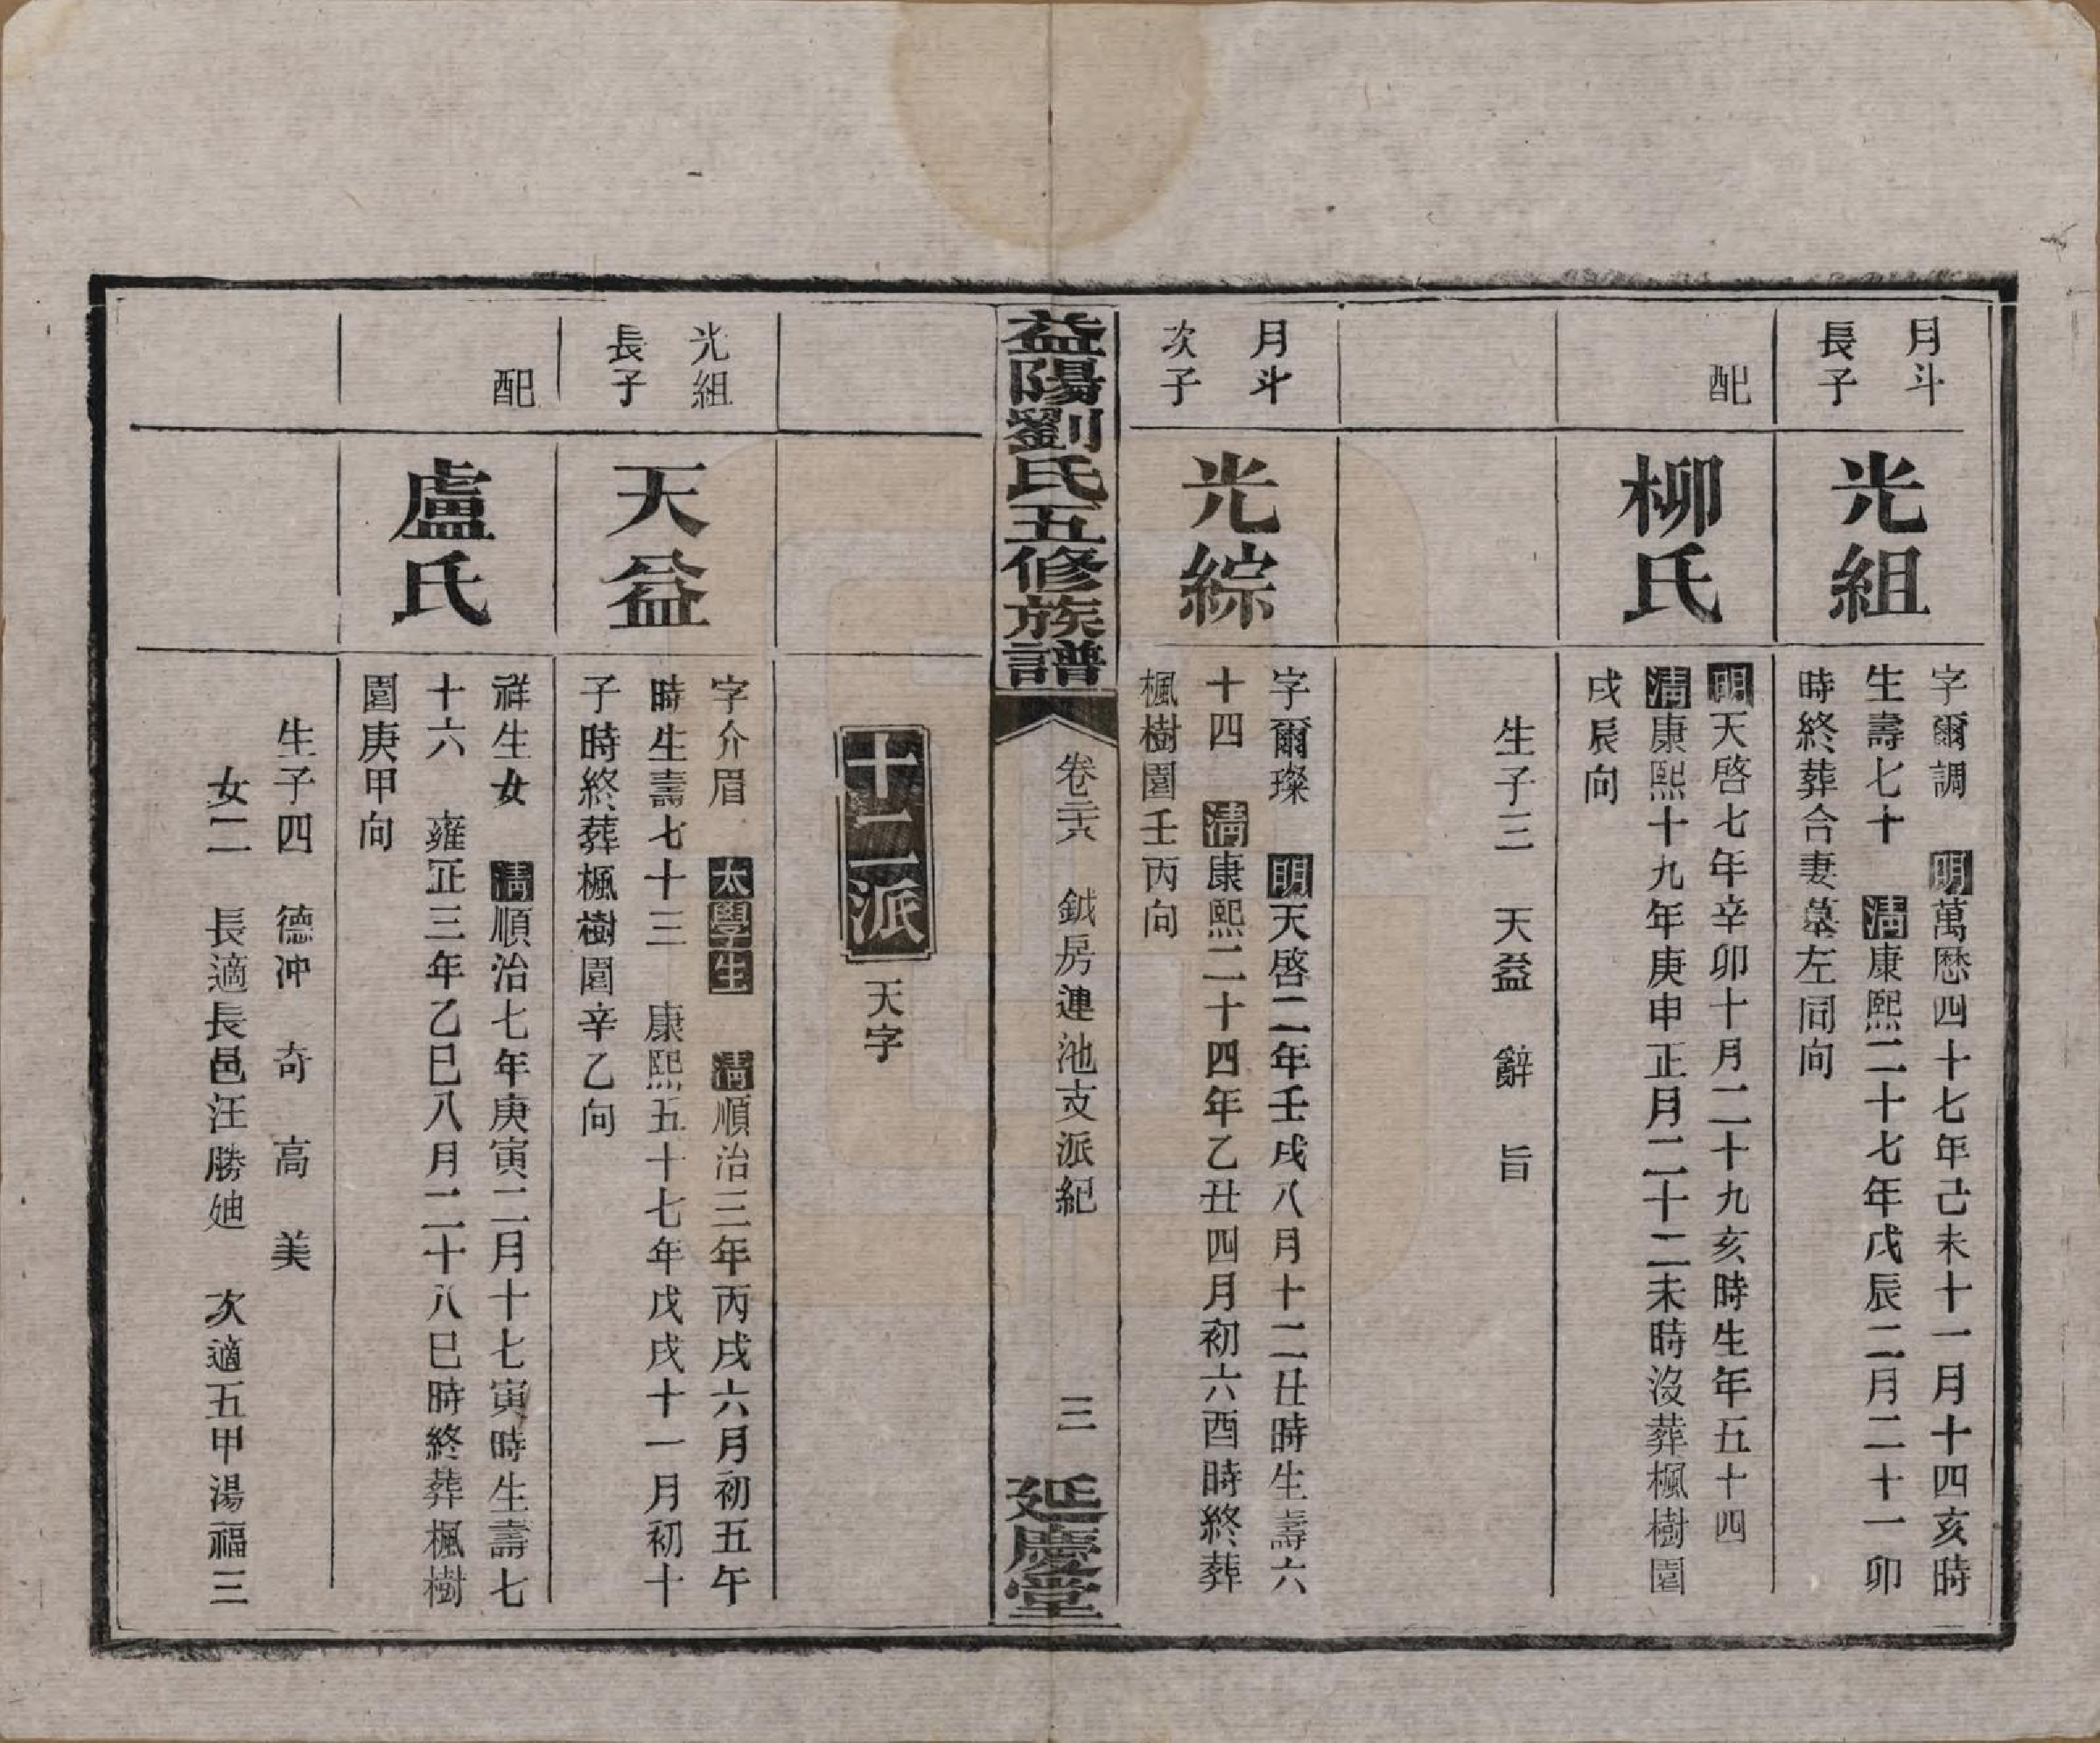 月斗
長子
光組
字爾調　明萬歷四十七年己未十一月十四亥時
生壽七十　淸康熙二十七年戊辰二月二十一卯
時終葬合妻墓左同向
配
柳氏
明天啓七年辛卯十月二十九亥時生年五十四
淸康熙十九年庚申正月二十二未時沒葬楓樹園
戌辰向
生子三　天益　辭　旨
月斗
次子
光綜
字爾璨　明天啓二年壬戌八月十二丑時生壽六
十四　淸康熙二十四年乙丑四月初六酉時終葬
楓樹園壬丙向
益陽劉氏五修族譜
卷二六　鉞房連池支派紀　三
延慶堂
十二派　天字
光組
長子
天益
字介眉　太學生　淸順治三年丙戌六月初五午
時生壽七十三　康熙五十七年戊戌十一月初十
子時終葬楓樹園辛乙向
配
盧氏
祥生女　淸順治七年庚寅二月十七寅時生壽七
十六　雍正三年乙巳八月二十八巳時終葬楓樹
園庚甲向
生子四　德沖　奇　高　美
女二　長適長邑汪勝妯　次適五甲湯福三